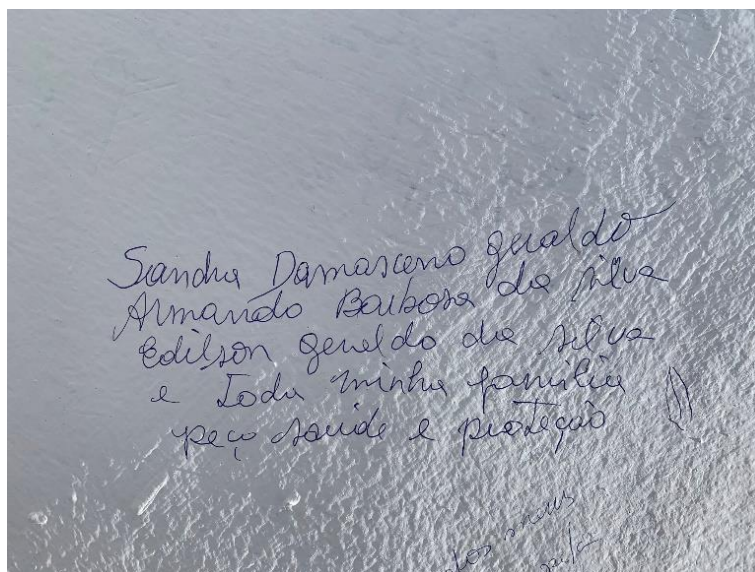 Sandra Damasceno geraldo
Armando Barbosa da silva
Edilson geraldo da silva
e Toda minha família
peço saúde e proteção
dos meus